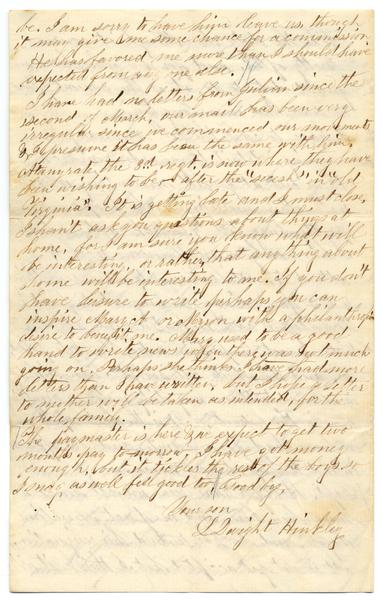 be. I am sorry to have him leave us, though
it may give me some chance for a commission
He has favored me more than I should have
expected from any one else.
I have had no letters from Julian since the
second of March, our mails has been very
irregular since we commenced our movements
& I presume it has been the same with him.
At any rate the 3rd regt. is now where they have
been wishing to be after the "secesh" in "old
Virginia". It is getting late and I must close.
I shan't ask you questions about things at
home, for I am sure you know what will
be interesting or rather that anything about
home will be interesting to me. If you don't
have leisure to write perhaps you can
inspire Mary A or Myron with a philanthropic
desire to benefit me. Mary used to be a good
hand to write news when there was not much
going on. Perhaps she thinks I have had more
letters than I have written, but I hope a letter
to mother will be taken as intended, for the
whole family.
The paymaster is here & we expect to get two
months pay to-morrow, I have got money
enough, but it tickles the rest of the boys so
I may as well feel good too, Good by,
Your son
L Dwight Hinkley